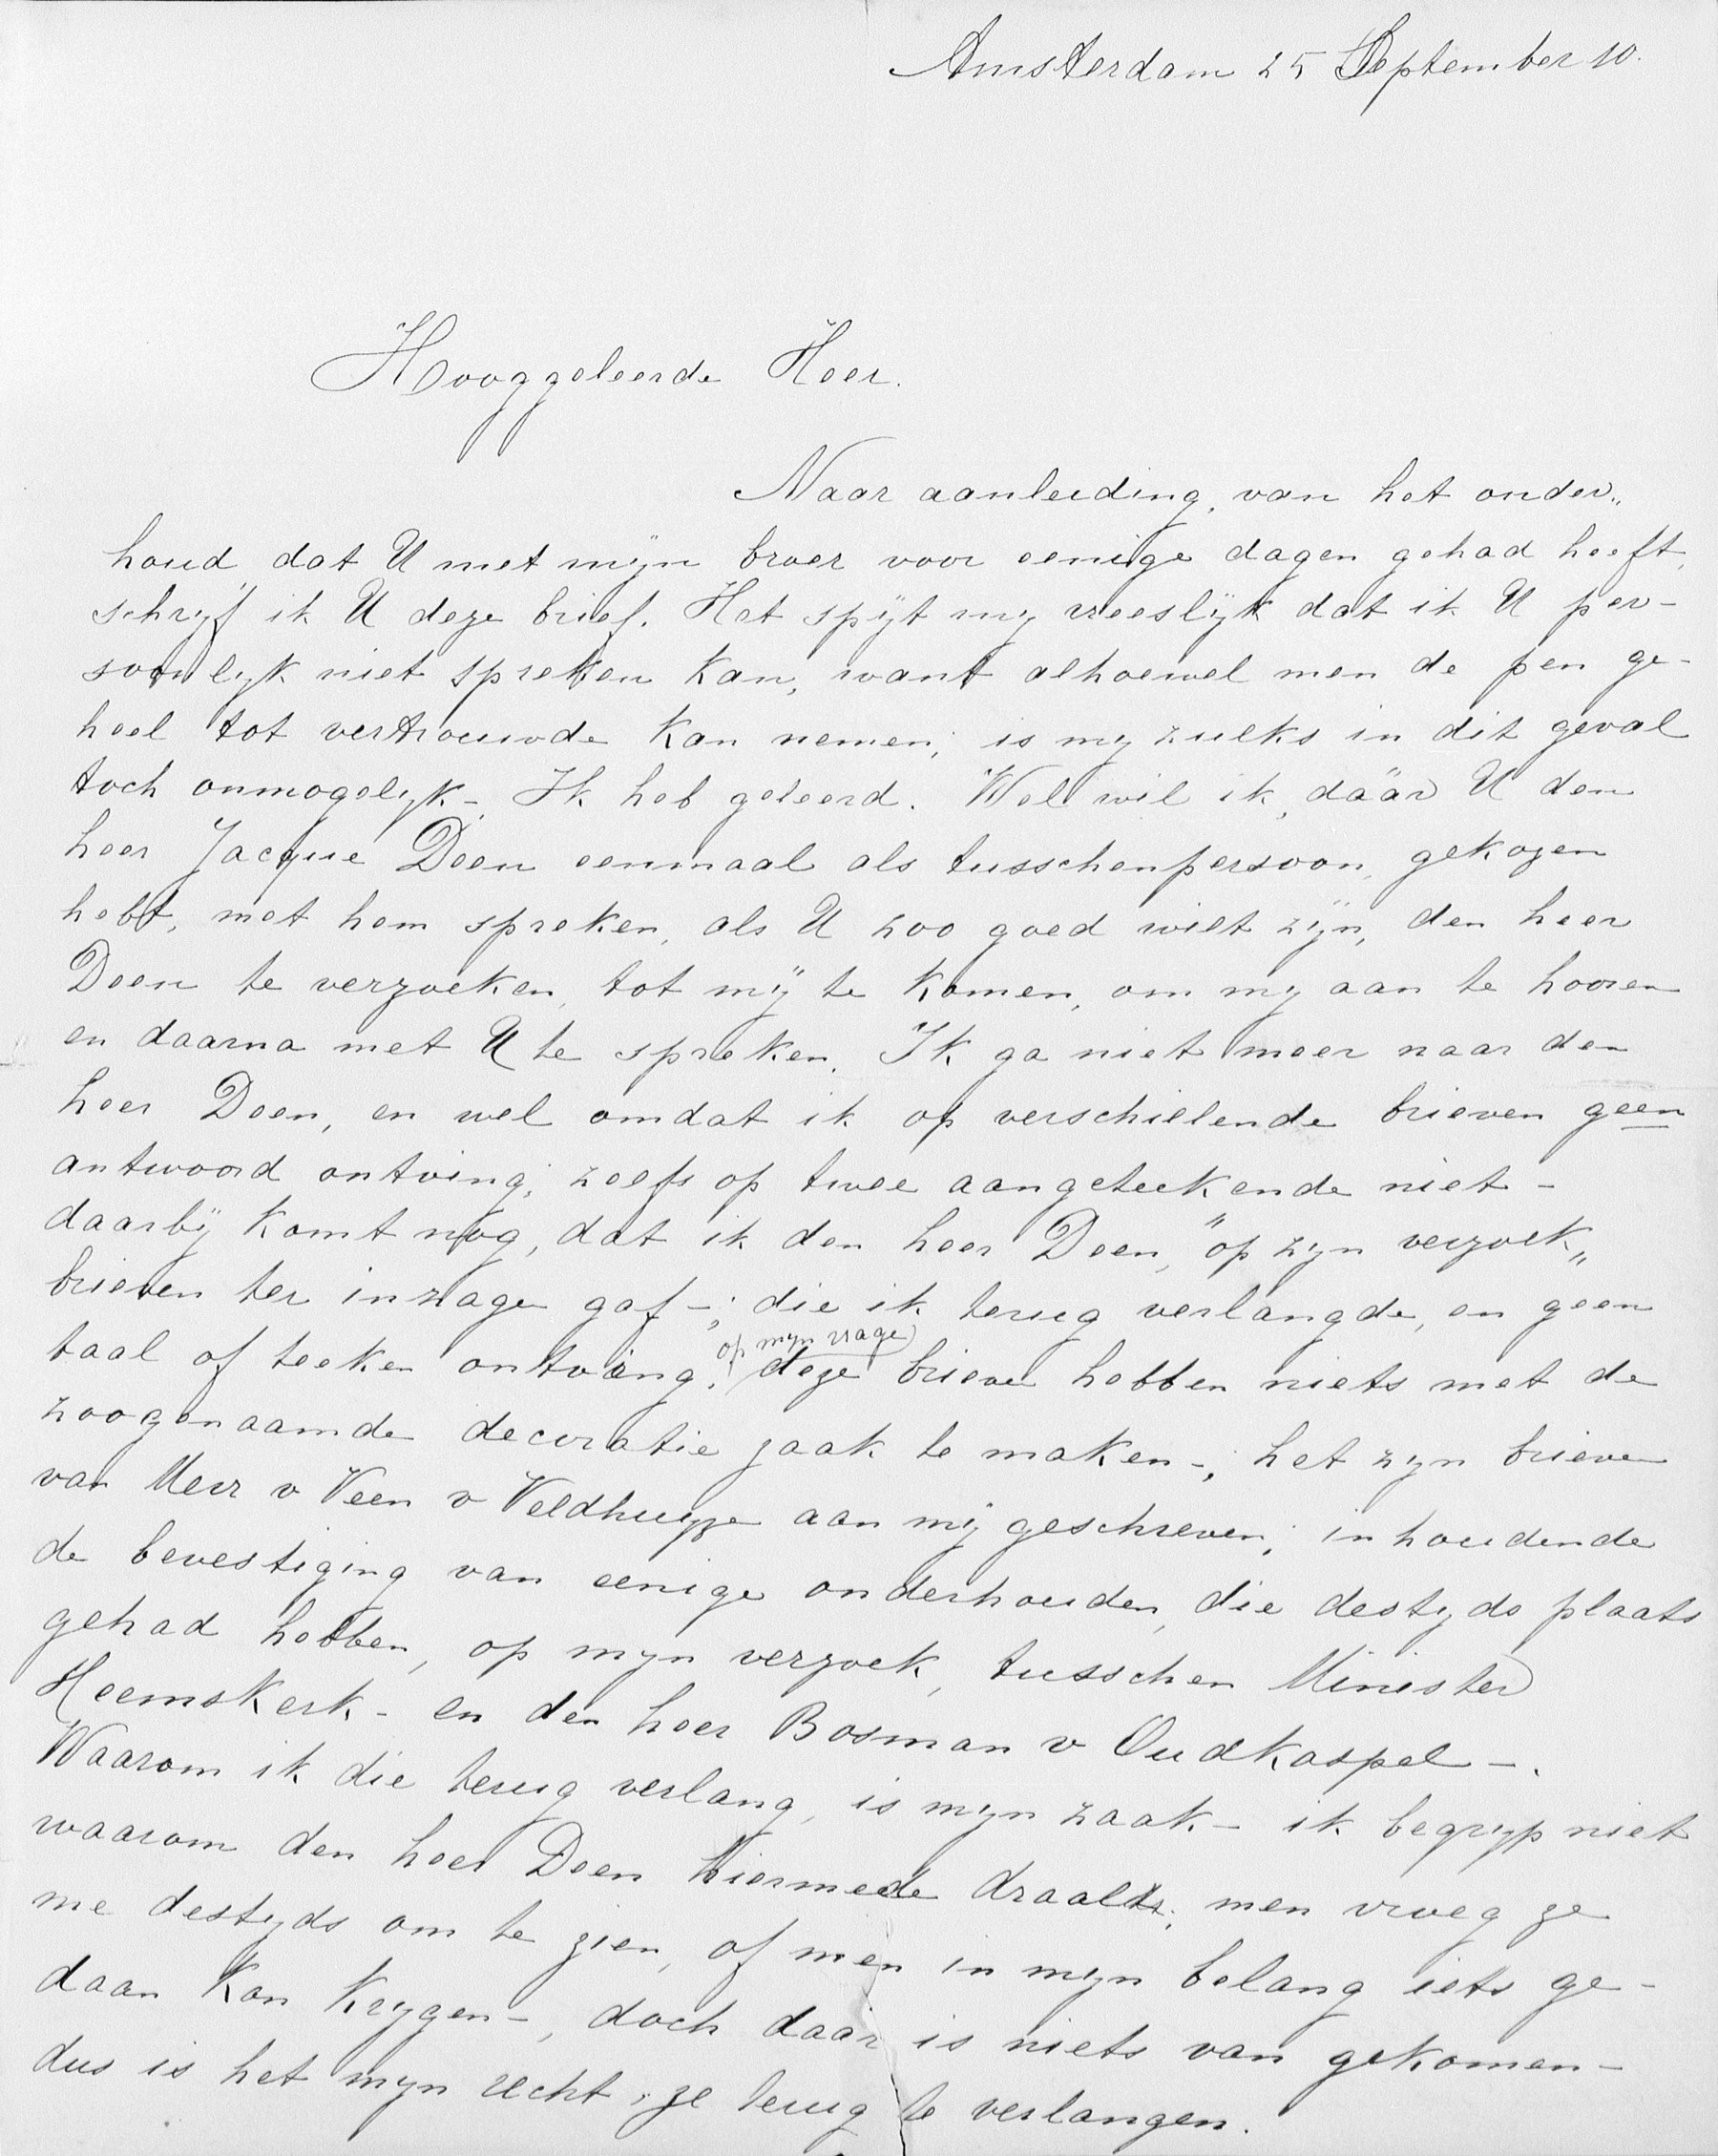 Amsterdam 25 September 10.
Hooggeleerde Heer.
Naar aanleiding, van het onder„
houd dat U met mijn broer voor eenige dagen gehad heeft,
schrijf ik U deze brief. Het spijt my vreeslijk dat ik U per-
soonlyk niet spreken kan, want alhoewel men de pen ge-
heel tot vertrouwde kan nemen, is my zulks in dit geval
toch onmogelyk - Ik heb geleerd. Wel wil ik, däär U den
heer Jacque Deen eenmaal als tusschenpersoon, gekozen
hebt, met hem spreken, als U zoo goed wilt zijn, den heer
Deen te verzoeken, tot mij te komen, om my aan te hooren
en daarna met U te spreken. Ik ga niet meer naar den
heer Deen, en wel omdat ik op verschillende brieven geen
antwoord ontving, zelfs op twee aangeteekende niet -
daarbij komt nog, dat ik den heer Deen, "op zyn verzoek„
brieven ter inzage gaf -; die ik terug verlangde, en geen
op myn vrage
taal of teeken ontving. deze brieven hebben niets met de
zoogenaamde decoratie zaak te maken -, het zyn brieven
van Mevr v Veen v Veldhuyze aan mij geschreven, inhoudende
de bevestiging van eenige onderhouden, die destyds plaats
gehad hebben, op myn verzoek, tusschen Minister
Heemskerk - en den heer Bosman v Oudkaspel -.
Waarom ik die terug verlang, is myn zaak - ik begryp niet
waarom den heer Deen hiermede draalt; men vroeg ze
me destyds om te zien, of men in myn belang iets ge-
daan kon krygen -, doch daar is niets van gekomen -
dus is het myn recht, ze terug te verlangen.